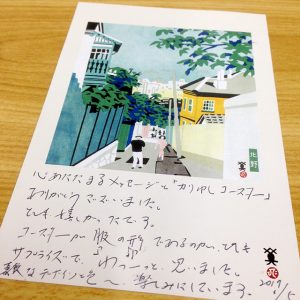 北野
心あたたまるメッセージと「かりゆしコースター」
ありがとうございました。
とても嬉しかったです。
コースターが服の形であるのが、とても
サプライズで、わっーっと思いました。
素敵なデザインと色〜 楽しみにしています。
2017.